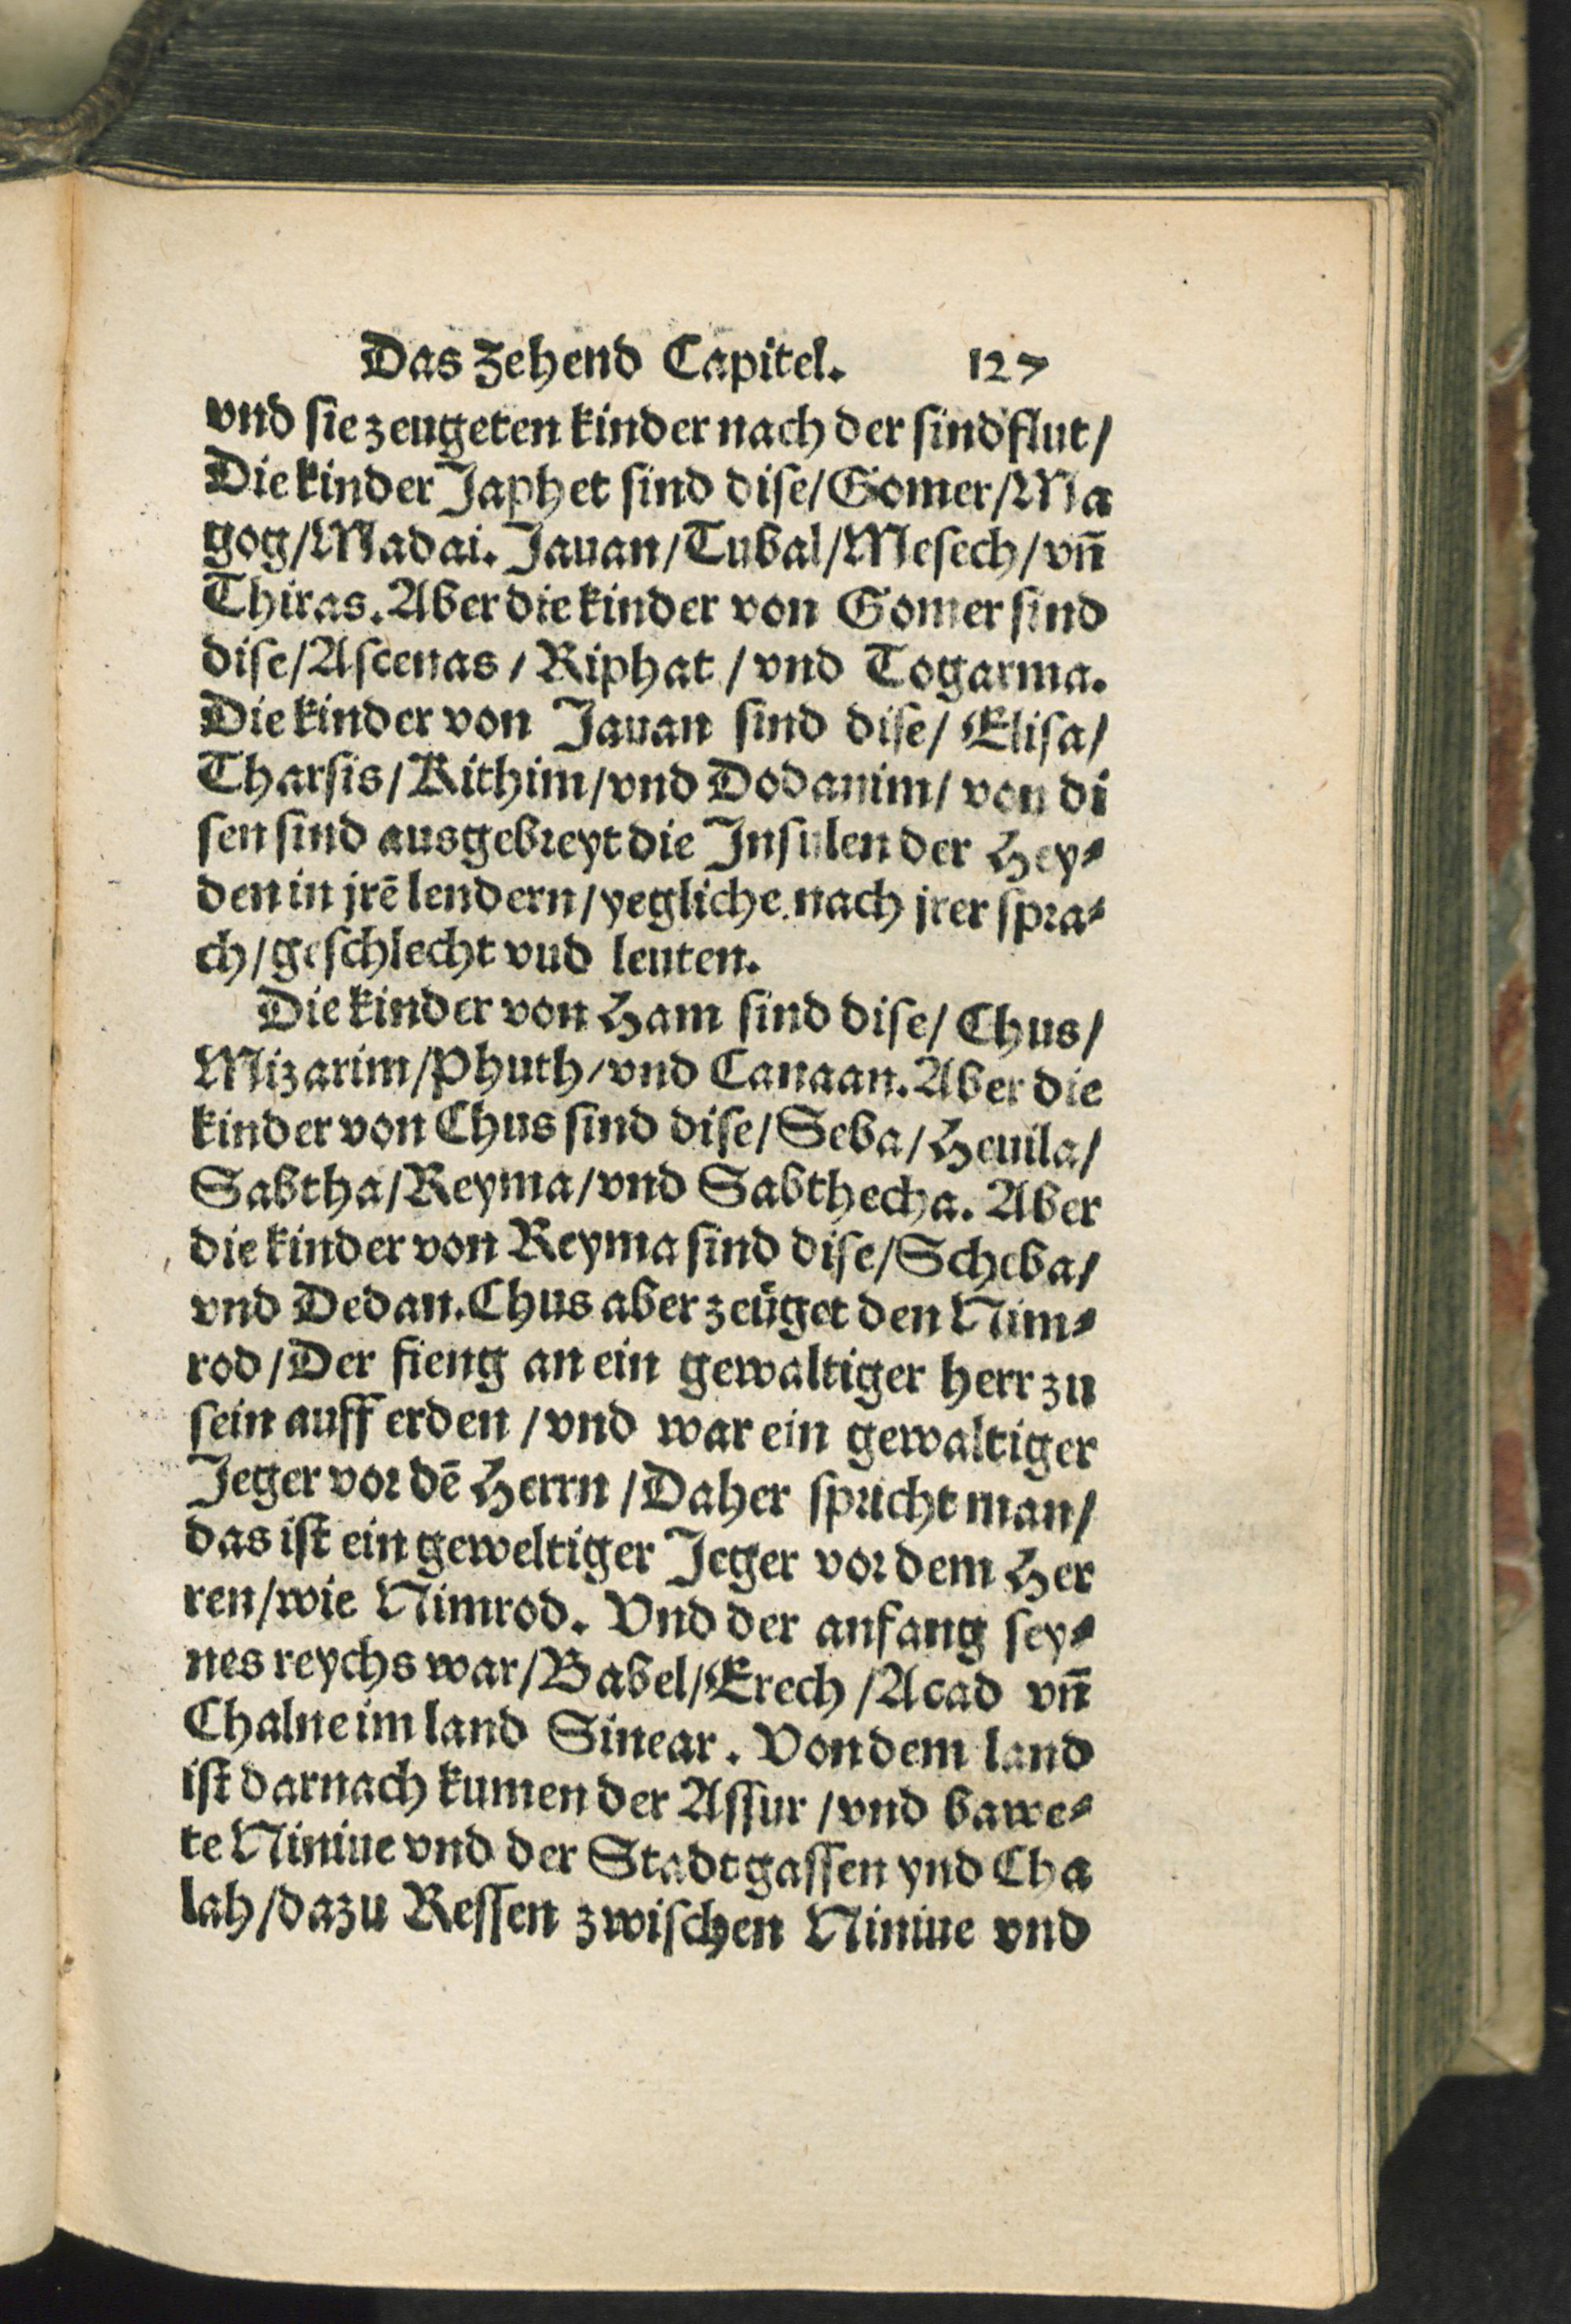 Das Zehend Capitel. 127
vnd sie zeugeten kinder nach der sindflut/
Die kinder Japhet sind dise/Gomer/Ma
gog/Madai. Jauan/Tubal/Mesech/vnñ
Thiras. Aber die kinder von Gomer sind
dise/Ascenas/Riphat/vnd Togarma.
Die kinder von Jauan sind dise/Elisa/
Tharsis/Kithim/vnd Dodanim/von di
sen sind ausgebreyt die Insulen der Hey⸗
den in jrē lendern/yegliche nach jrer spra⸗
ch/geschlecht vud leuten.
Die kinder von Ham sind dise/Chus/
Mizarim/Phuth/vnd Canaan. Aber die
kinder von Chus sind dise/Seba/Heuila/
Sabtha/Reyma/vnd Sabthecha. Aber
die kinder von Reyma sind dise/Scheba/
vnd Dedan. Chus aber zeüget den Nim⸗
rod/Der fieng an ein gewaltiger herr zu
sein auff erden/vnd war ein gewaltiger
Jeger vor dē Herrn/Daher spricht man/
das ist ein geweltiger Jeger vor dem Her
ren/wie Nimrod. Vnd der anfang sey⸗
nes reychs war/Babel/Erech/Acad vnñ
Chalne im land Sinear. Von dem land
ist darnach kumen der Assur/vnd bawe⸗
te Niniue vnd der Stadtgassen ynd Cha
lah/dazu Ressen zwischen Niniue vnd